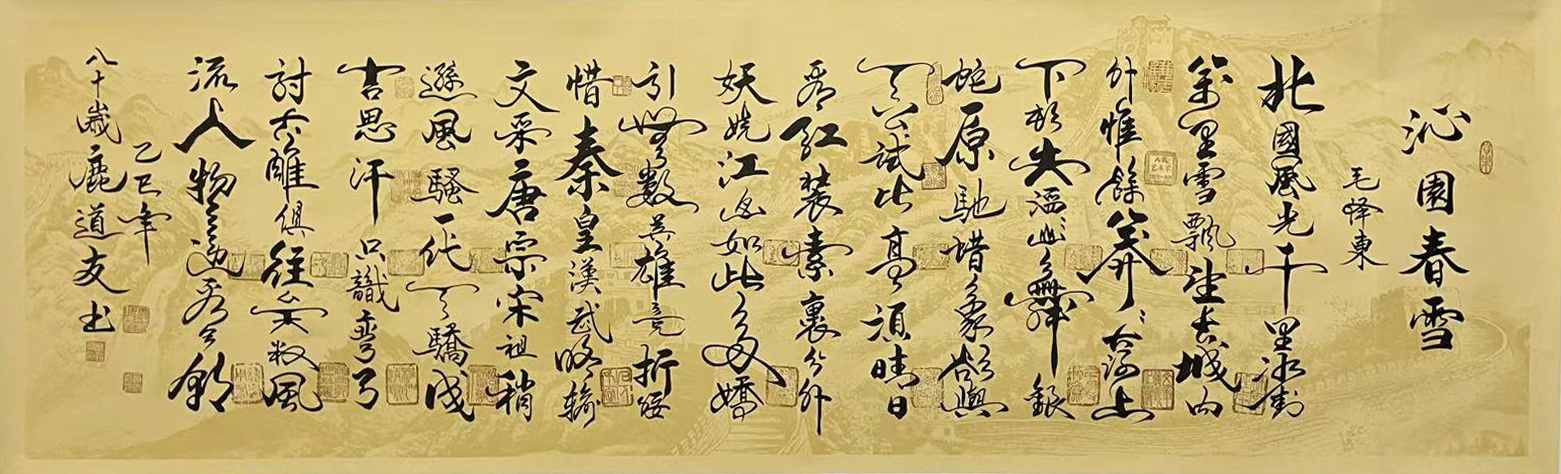 沁園春雪
毛澤東
北國風光千里冰封
萬里雪飄望長城内
外惟餘莽〻大河上
下頓失滔〻山舞銀
蛇原馳蜡象欲與
天公試比高須晴日
看紅裝素裹分外
妖嬈江山如此多嬌
引無數英雄竞折腰
惜秦皇漢武略輸
文采唐宗宋祖稍
遜風騷一代天驕成
吉思汗只識彎弓
射大雕俱往矣数風
流人物還看今朝
乙巳年
八十歲鹿道友书